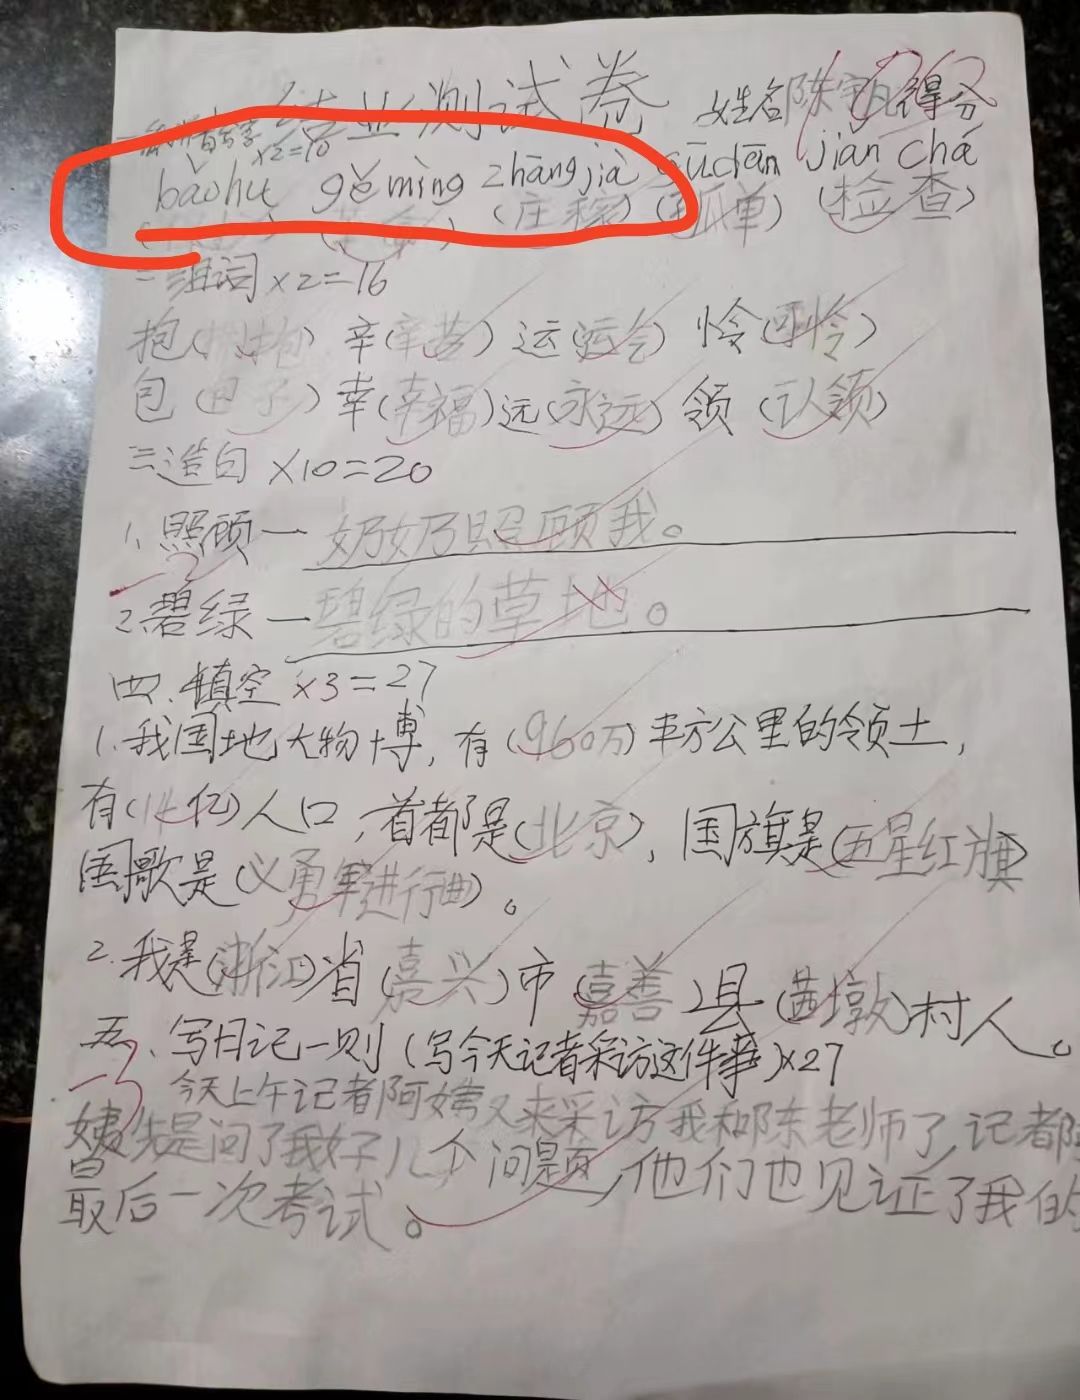 结业测试卷 姓名陈宇凡得分100
一、看拼音写字 x2=10
bǎohù gé mìng zhāngjià gūdān jiǎn chá
(保护) (革命) (庄稼) (孤单) (检查)
二组词 x2=16
抱(拥抱) 辛(辛苦) 运(运气) 怜(可怜)
包(包子) 幸(幸福) 远(永远) 领(认领)
三造句 X10=20
1、照顾一奶奶照顾我。
2碧绿一碧绿的草地。
四、填空 x3=27
1.我国地大物博,有(960万)平方公里的领土,
有(14亿)人口,首都是(北京),国旗是(五星红旗)
国歌是(义勇军进行曲)。
2.我是(浙江)省(嘉兴)市(嘉善)县(茜墩)村人。
五、写日记一则(写今天记者采访这件事)x27
今天上午记者阿姨又来采访我和陈老师了,记者阿
姨先是问了我好几个问题,他们也见证了我的
最后一次考试。